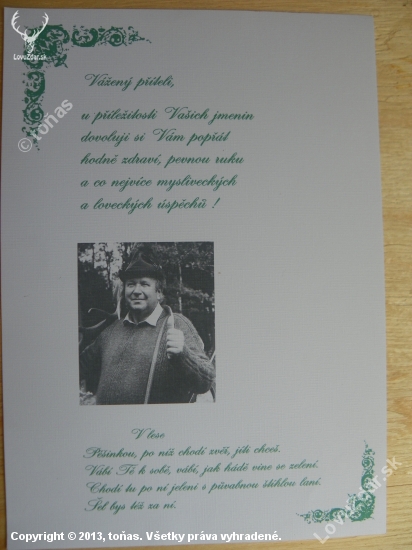 LoveZdar.sk
© toňas
Vážený příteli,
u příležitosti Vašich jmenin
dovoluji si Vám popřát
hodně zdraví, pevnou ruku
a co nejvíce mysliveckých
a loveckých úspěchů !
V lese
Pěšinkou, po níž chodí zvěř, jíti chceš.
Vábí Tě k sobě, vábí, jak hádě vine se zelení.
Chodí tu po ní jeleni s půvabnou štíhlou laní.
Šel bys též za ní.
LoveZdar.sk
Copyright © 2013, toňas. Všetky práva vyhradené.